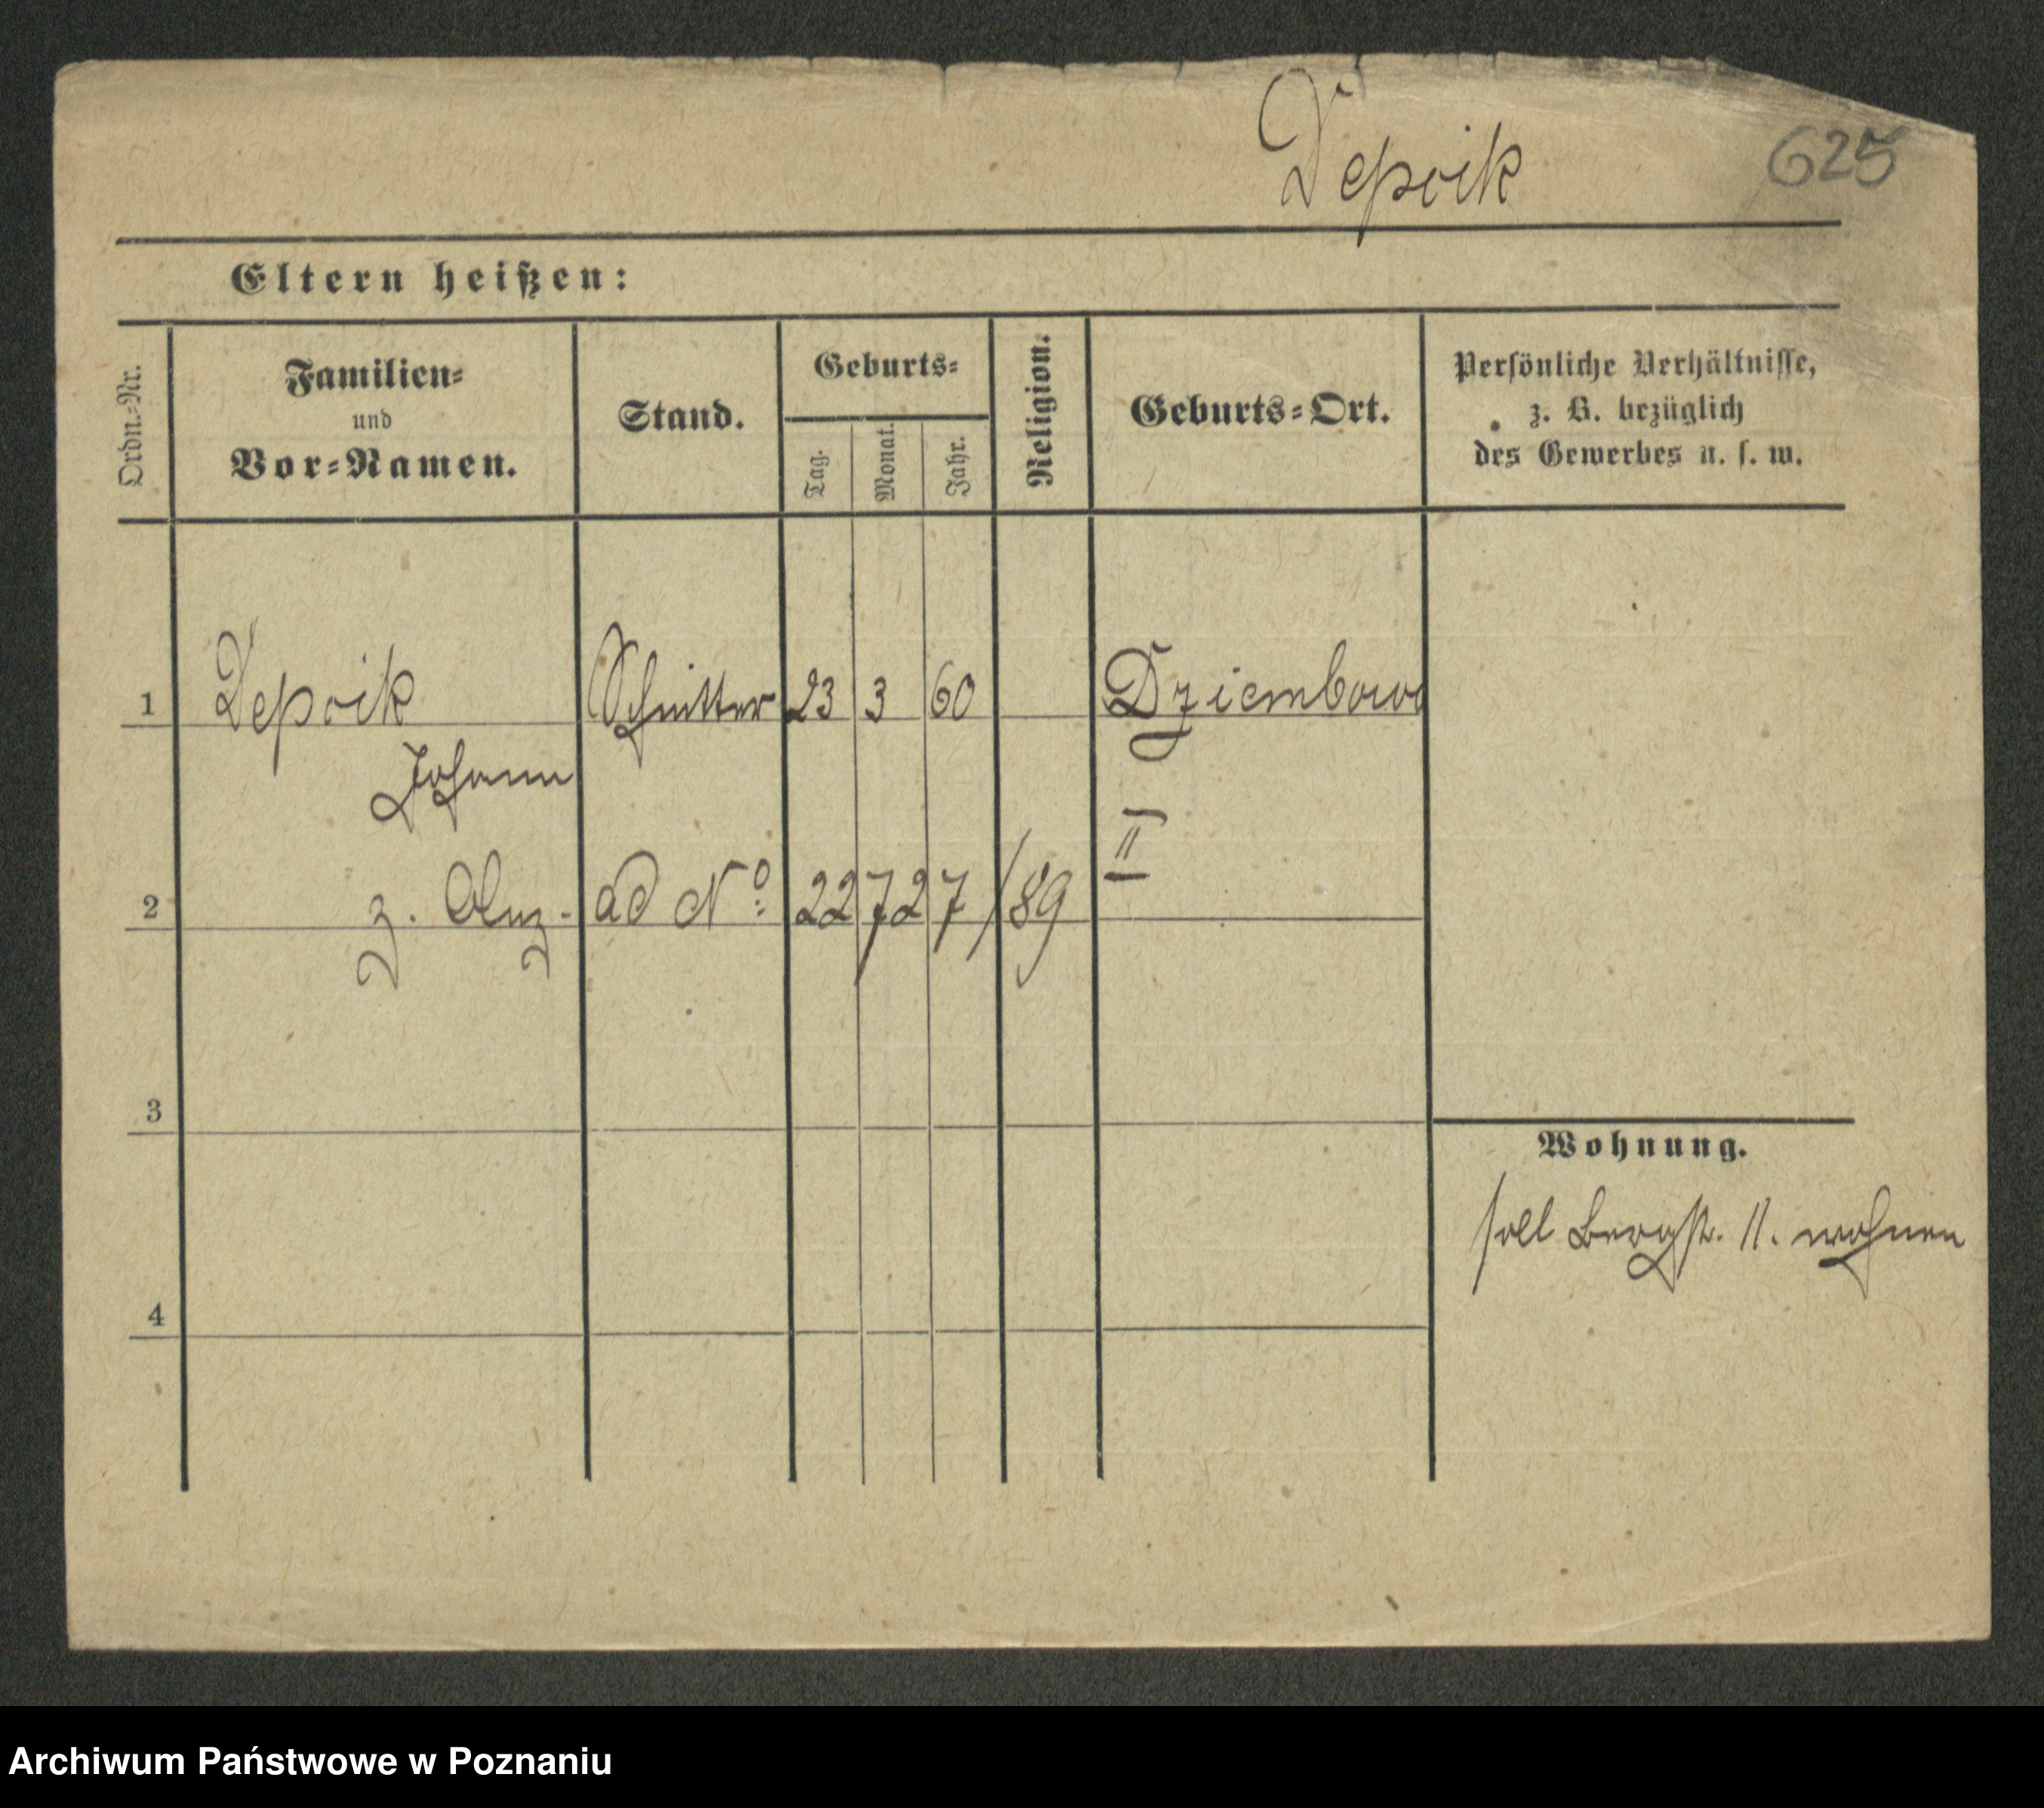 Depcik 625
Eltern heißen:
Ordn.-Nr.
Familien-
und
Vor-Namen.
Stand.
Geburts-
Tag.
Monat.
Jahr.
Religion.
Geburts-Ort.
Persönliche Verhältnisse,
z. B. bezüglich
des Gewerbes u. s. w.
1 Depcik Schnitter 23 3 60 Dziembowo
Johann
II
2 z. Anz. ad No: 22727/89
3
Wohnung.
soll Bergstr. 11. wohnen
4
Archiwum Państwowe w Poznaniu